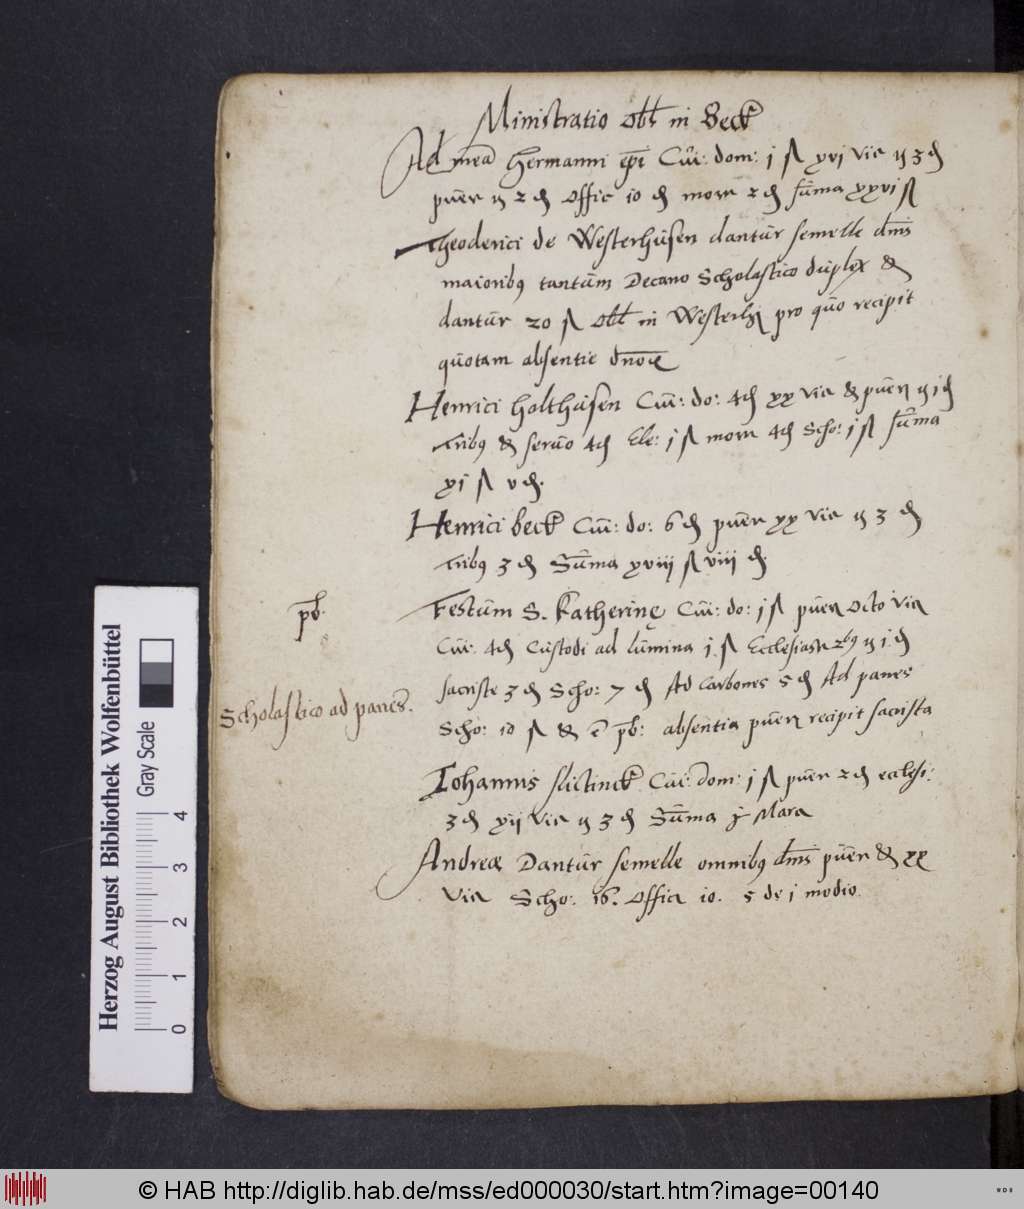 Ministratio Obl in Beck
Ad mea Hermanni epi Cui: dom: j ß xvj via ij 3 d
puer ij 2 d Offic 10 d mom 2 d suma xxvi ß
Theoderici de Westerhusen dantur semelle dnis
maioribus tantum Decano Scholastico duplex &
dantur 20 ß Obl in Westerh pro quo recipit
quotam absentie
Henrici Holthusen Cui: do: 4 d xx via & puer ij j d
Tribus & seruo 4 d Ele: j ß mom 4 d Scho: j ß suma
xj ß v d.
Henrici beck Cui: do: 6 d puer xx via ij 3 d
Tribus 3 d Suma xviii ß viii d.
pb. Festum S. Katherinę Cui: do: j ß puer octo via
Cui: 4 d Custodi ad lumina j ß Ecclesiast 2bus ij j d
Scholastico ad panes. sacriste 3 d Scho: 7 d Ad Carbones 5 d Ad panes
Scho: 10 ß & pb: absentia puer recipit sacrista
Iohannis slictinck Cui: dom: j ß puer 2 d ecclesi:
3 d xij via ij 3 d Suma Mara
Andreæ Dantur semelle omnibus dnis puer & xx
via Scho: 16. Offica 10. 5 de j modio.
Herzog August Bibliothek Wolfenbüttel
Gray Scale
0 1 2 3 4
© HAB http://diglib.hab.de/mss/ed000030/start.htm?image=00140